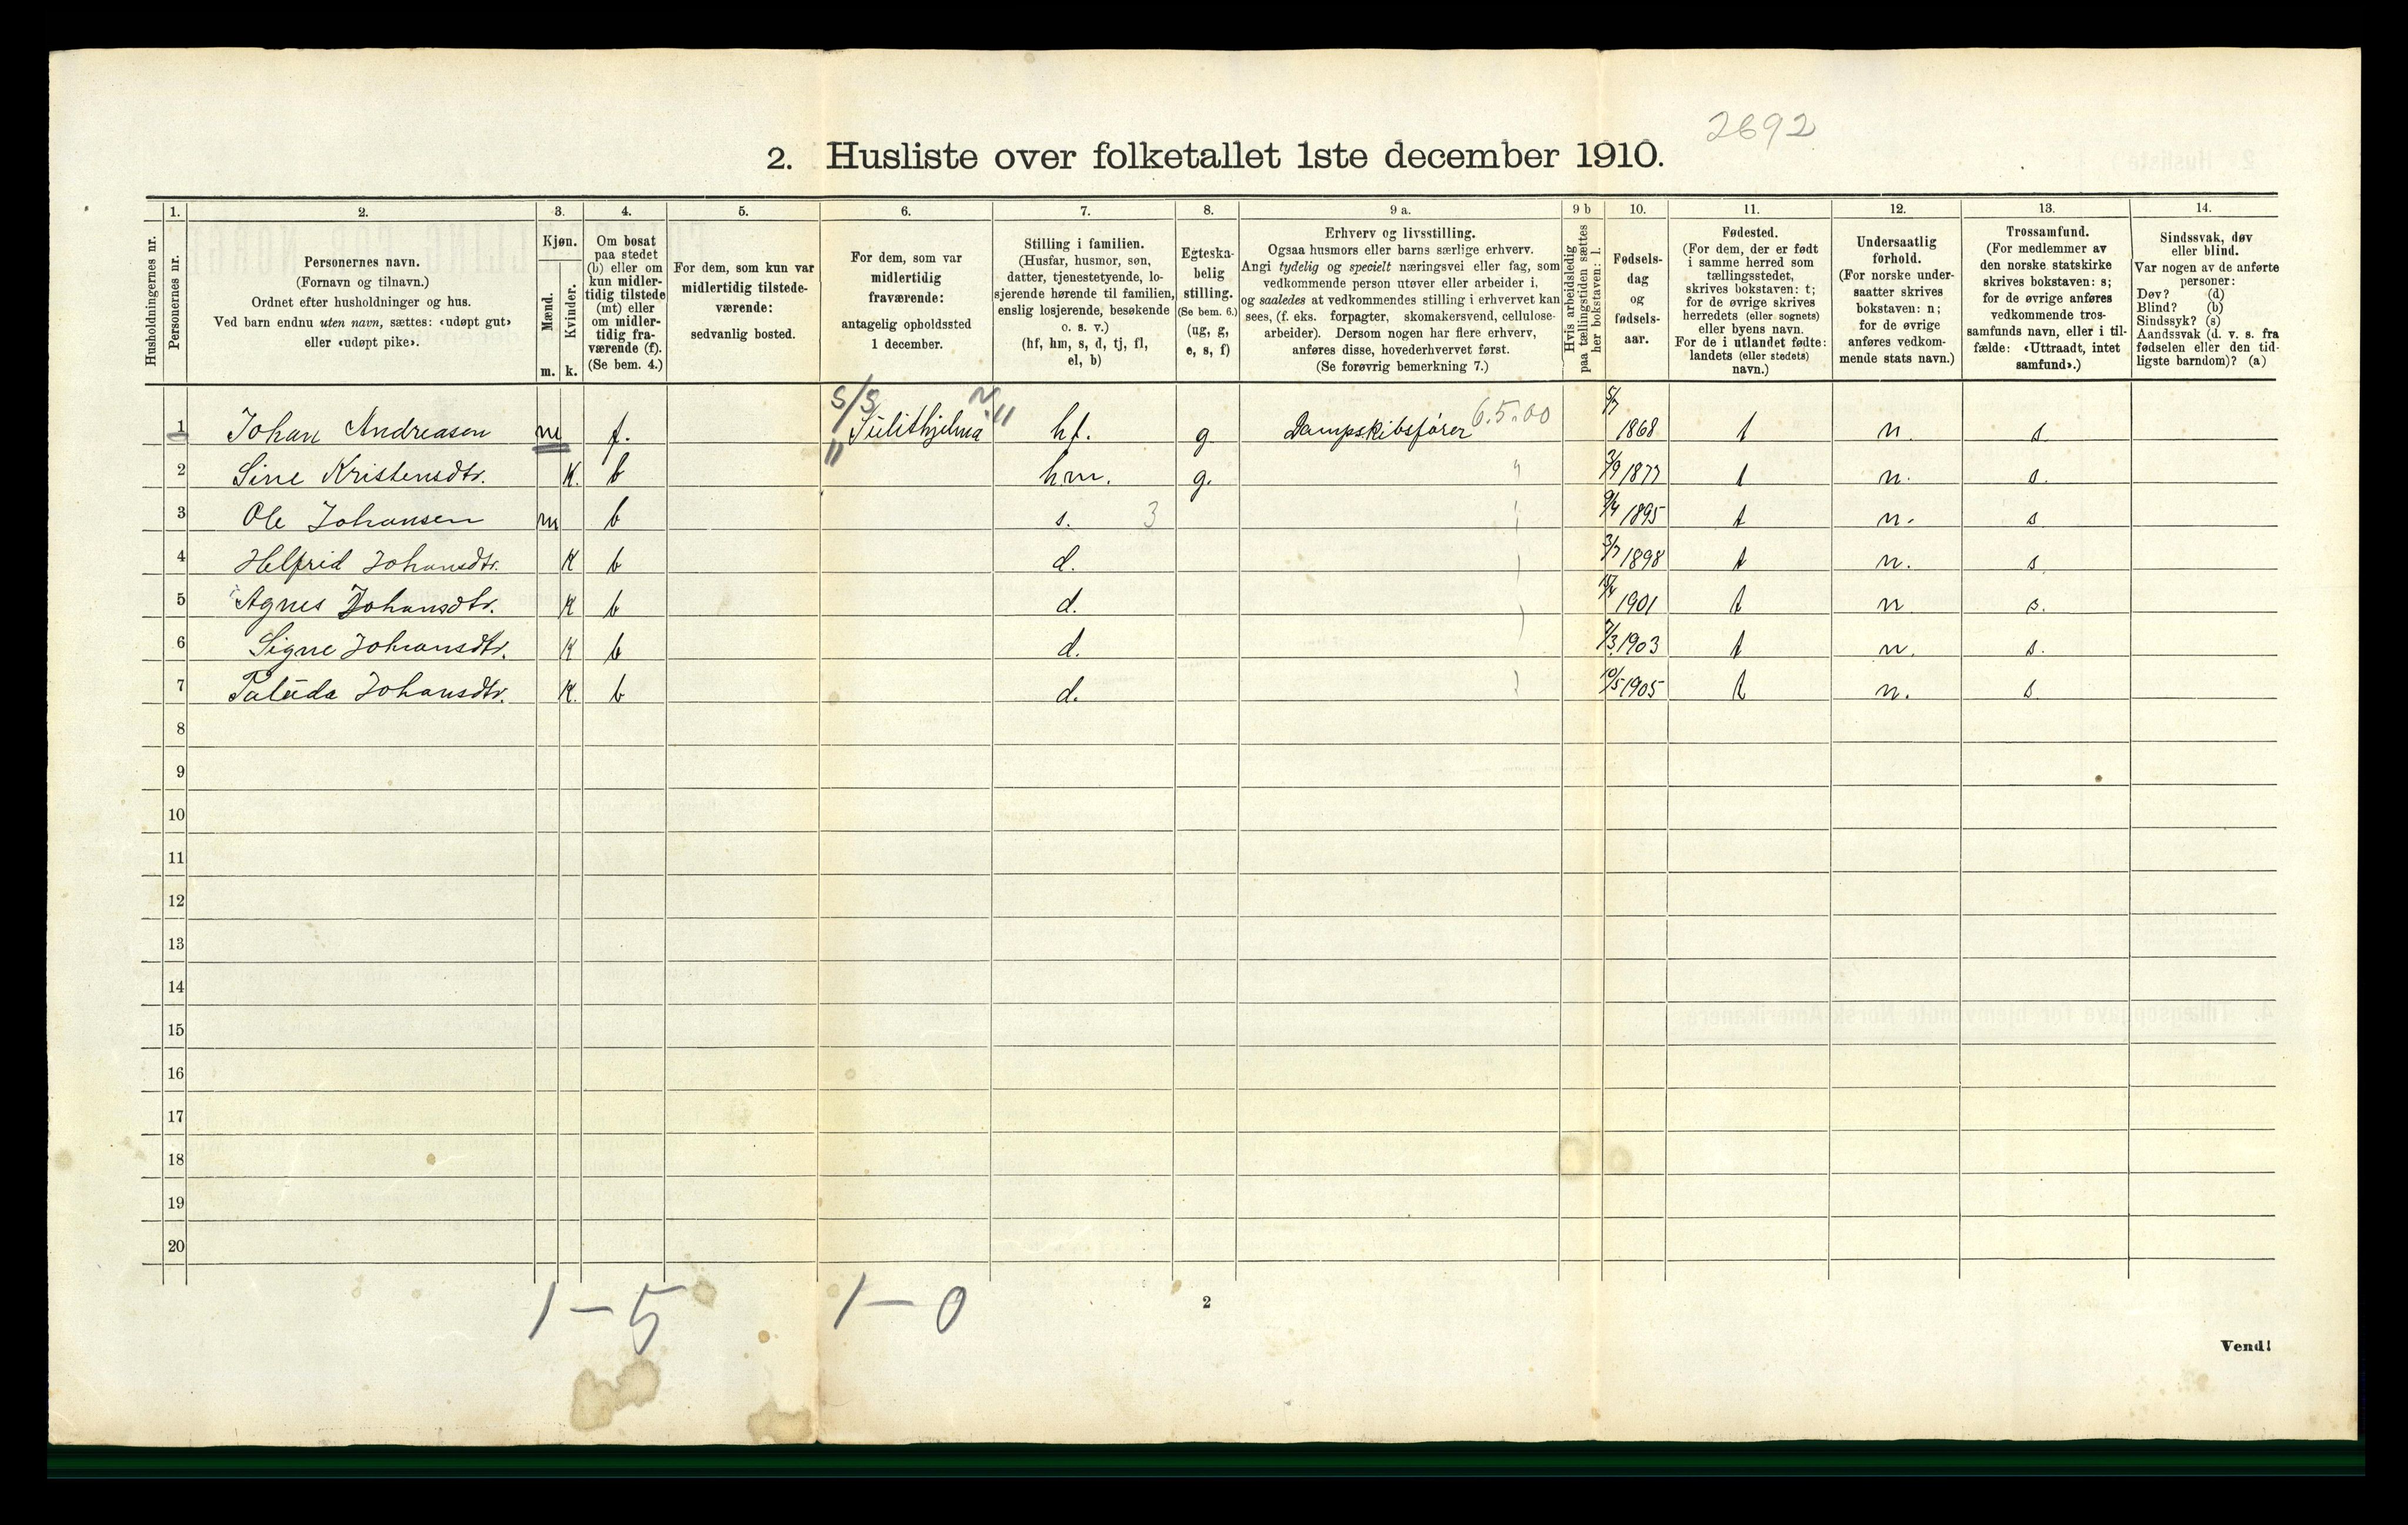 2692
2. Husliste over folketallet 1ste december 1910.
1. 2. 3. 4. 5. 6. 7. 8. 9 a. 9 b 10. 11. 12. 13. 14.
Husholdningernes nr.
Personernes nr.
Personernes navn.
(Fornavn og tilnavn.)
Ordnet efter husholdninger og hus.
Ved barn endnu uten navn, sættes: «udøpt gut»
eller «udøpt pike».
Kjøn.
Mænd.
Kvinder.
m. k.
Om bosat
paa stedet
(b) eller om
kun midler-
tidig tilstede
(mt) eller
om midler-
tidig fra-
værende (f).
(Se bem. 4.)
For dem, som kun var
midlertidig tilstede-
værende:
sedvanlig bosted.
For dem, som var
midlertidig
fraværende:
antagelig opholdssted
1 december.
Stilling i familien.
(Husfar, husmor, søn,
datter, tjenestetyende, lo-
sjerende hørende til familien,
enslig losjerende, besøkende
o. s. v.)
(hf, hm, s, d, tj, fl,
el, b)
Egteska-
belig
stilling.
(Se bem. 6.)
(ug, g,
e, s, f)
Erhverv og livsstilling.
Ogsaa husmors eller barns særlige erhverv.
Angi tydelig og specielt næringsvei eller fag, som
vedkommende person utøver eller arbeider i,
og saaledes at vedkommendes stilling i erhvervet kan
sees, (f. eks. forpagter, skomakersvend, cellulose-
arbeider). Dersom nogen har flere erhverv,
anføres disse, hovederhvervet først.
(Se forøvrig bemerkning 7.)
Hvis arbeidsledig
paa tællingstiden sættes
her bokstaven: l.
Fødsels-
dag
og
fødsels-
aar.
Fødested.
(For dem, der er født
i samme herred som
tællingsstedet,
skrives bokstaven: t;
for de øvrige skrives
herredets (eller sognets)
eller byens navn.
For de i utlandet fødte:
landets (eller stedets)
navn.)
Undersaatlig
forhold.
(For norske under-
saatter skrives
bokstaven: n;
for de øvrige
anføres vedkom-
mende stats navn.)
Trossamfund.
(For medlemmer av
den norske statskirke
skrives bokstaven: s;
for de øvrige anføres
vedkommende tros-
samfunds navn, eller i til-
fælde: «Uttraadt, intet
samfund».)
Sindssvak, døv
eller blind.
Var nogen av de anførte
personer:
Døv? (d)
Blind? (b)
Sindssyk? (s)
Aandssvak (d. v. s. fra
fødselen eller den tid-
ligste barndom)? (a)
1 Johan Andreasen m f. S/S "Sulithjelma" hf. g Dampskibsfører 6.5.00 5/7 1868 t n. s
2 Sine Kristensdtr. K. b hm. g. " 3/9 1877 t n. s.
3 Ole Johansen m b s. 3 9/4 1895 t n. s
4 Helfrid Johansdtr. K b d. 3/7 1898 t n. s
5 Agnes Johansdtr. K b d. 1901 t n s.
6 Signe Johansdtr. K b d. 7/3 1903 t n. s.
7 Paluda Johansdtr. K. b d. 10/5 1905 t n. s.
8
9
10
11
12
13
14
15
16
17
18
19
20
1 – 5 1 – 0
2
Vend!